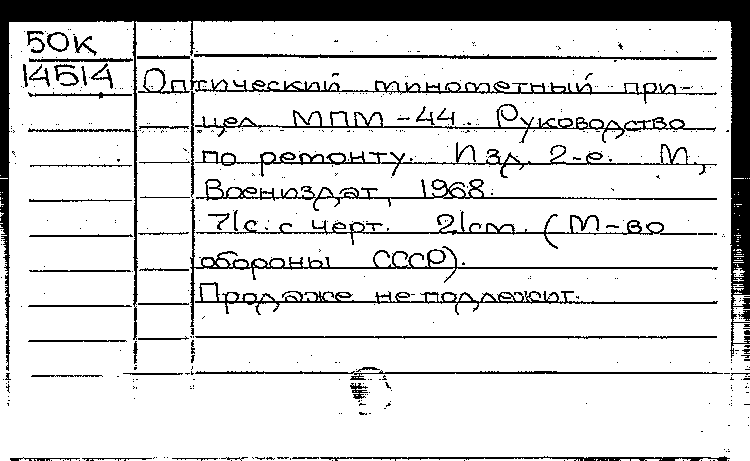 50к
14514
Оптический минометный при-
цел МПМ-44. Руководство
по ремонту. Изд. 2-е. М.,
Воениздат, 1968.
71с. с черт. 21cm. (М-во
обороны СССР).
Продаже не подлежит.